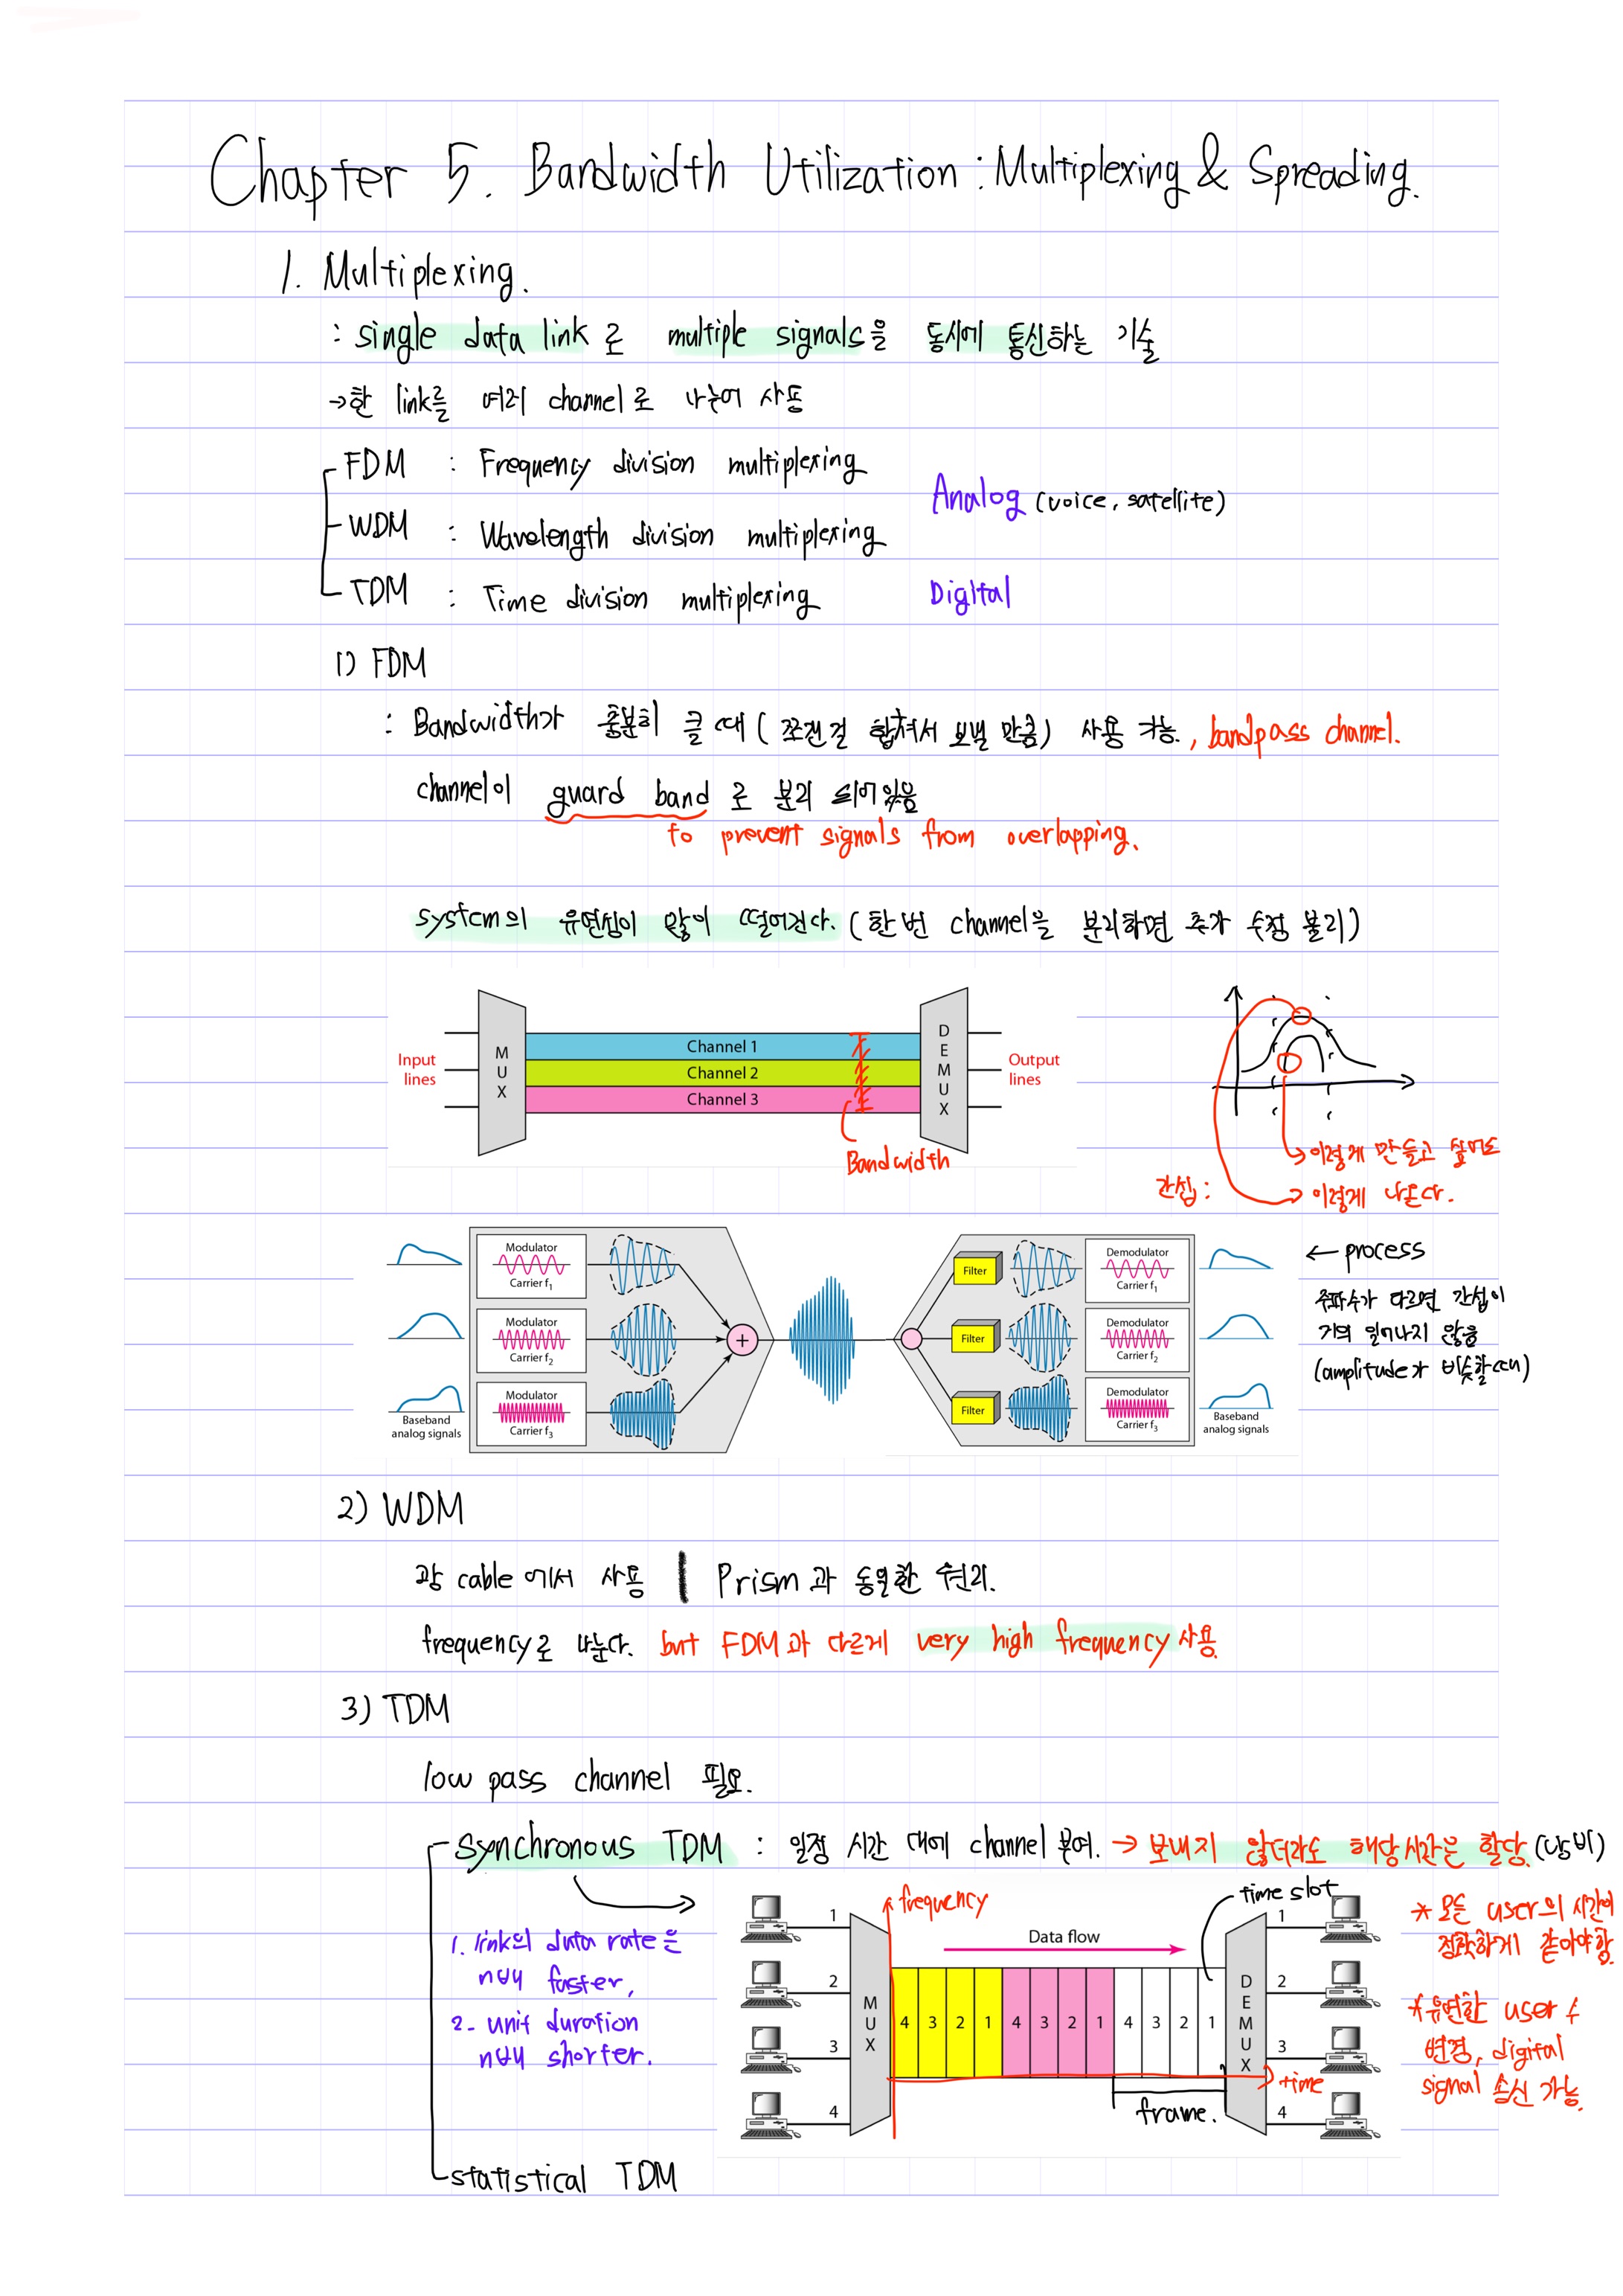 Chapter 5. Bandwidth Utilization : Multiplexing & Spreading.
1. Multiplexing.
: single data link 로 multiple signals을 동시에 통신하는 기술
→ 한 link를 여러 channel로 나눈어 사용
FDM : Frequency division multiplexing
Analog (voice, satellite)
WDM : Wavelength division multiplexing
TDM : Time division multiplexing Digital
1) FDM
: Bandwidth가 충분히 클 때 ( 쪼갠걸 합쳐서 보낼 만큼) 사용 가능. , bandpass channel.
channel이 guard band 로 분리 되어있음
to prevent signals from overlapping.
system의 유연성이 많이 떨어진다. (한 번 channel을 분리하면 추가 수정 불리)
Input lines
MUX
Channel 1
Channel 2
Channel 3
DEMUX
Output lines
Bandwidth
→ 이렇게 만들고 싶어도
간섭 : → 이렇게 나온다.
Modulator
Carrier f1
Modulator
Carrier f2
Modulator
Carrier f3
Baseband
analog signals
+
Filter
Filter
Filter
Demodulator
Carrier f1
Demodulator
Carrier f2
Demodulator
Carrier f3
Baseband
analog signals
← process
주파수가 다르면 간섭이
거의 일어나지 않음
(amplitude가 비슷할 때)
2) WDM
광 cable 에서 사용 | Prism과 동일한 원리.
frequency로 나눈다. but FDM과 다르게 very high frequency 사용.
3) TDM
low pass channel 필요.
synchronous TDM : 일정 시간 대에 channel 분여. → 보내지 않더라도 해당시간은 할당. (낭비)
1. link의 data rate은
n배 faster.
2. unit duration
n배 shorter.
frequency
time slot
Data flow
1
2
3
4
MUX
4 3 2 1 4 3 2 1 4 3 2 1
DEMUX
1
2
3
4
time
frame.
* 모든 user의 시간이
정확하게 같아야함.
* 유연한 user 수
변경, digital
signal 송신 가능.
statistical TDM